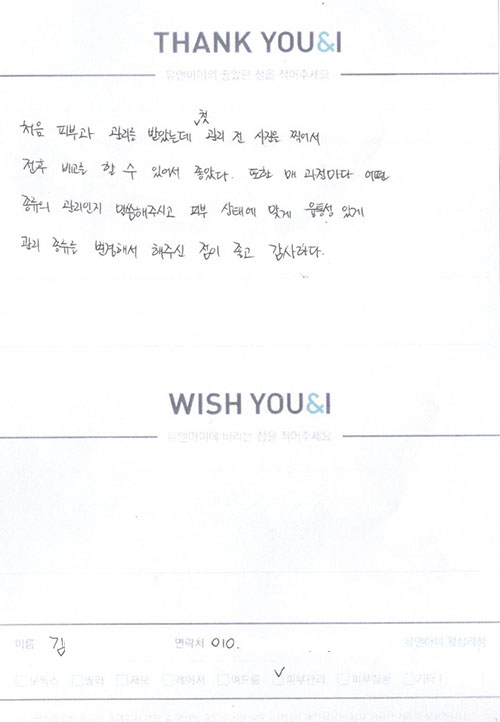 THANK YOU&I
유앤아이의 좋았던 점을 적어주세요
처음 피부과 관리를 받았는데 첫 관리 전 사진을 찍어서
전후 비교를 할 수 있어서 좋았다. 또한 매 과정마다 어떤
종류의 관리인지 말씀해주시고 피부 상태에 맞게 융통성 있게
관리 종류를 변경해서 해주신 점이 좋고 감사하다.
WISH YOU&I
유앤아이에 바라는 점을 적어주세요
이름 김 연락처 010. 유앤아이 왕십리점
보톡스 필러 제모 레이저 여드름 피부관리 피부질환 기타 (